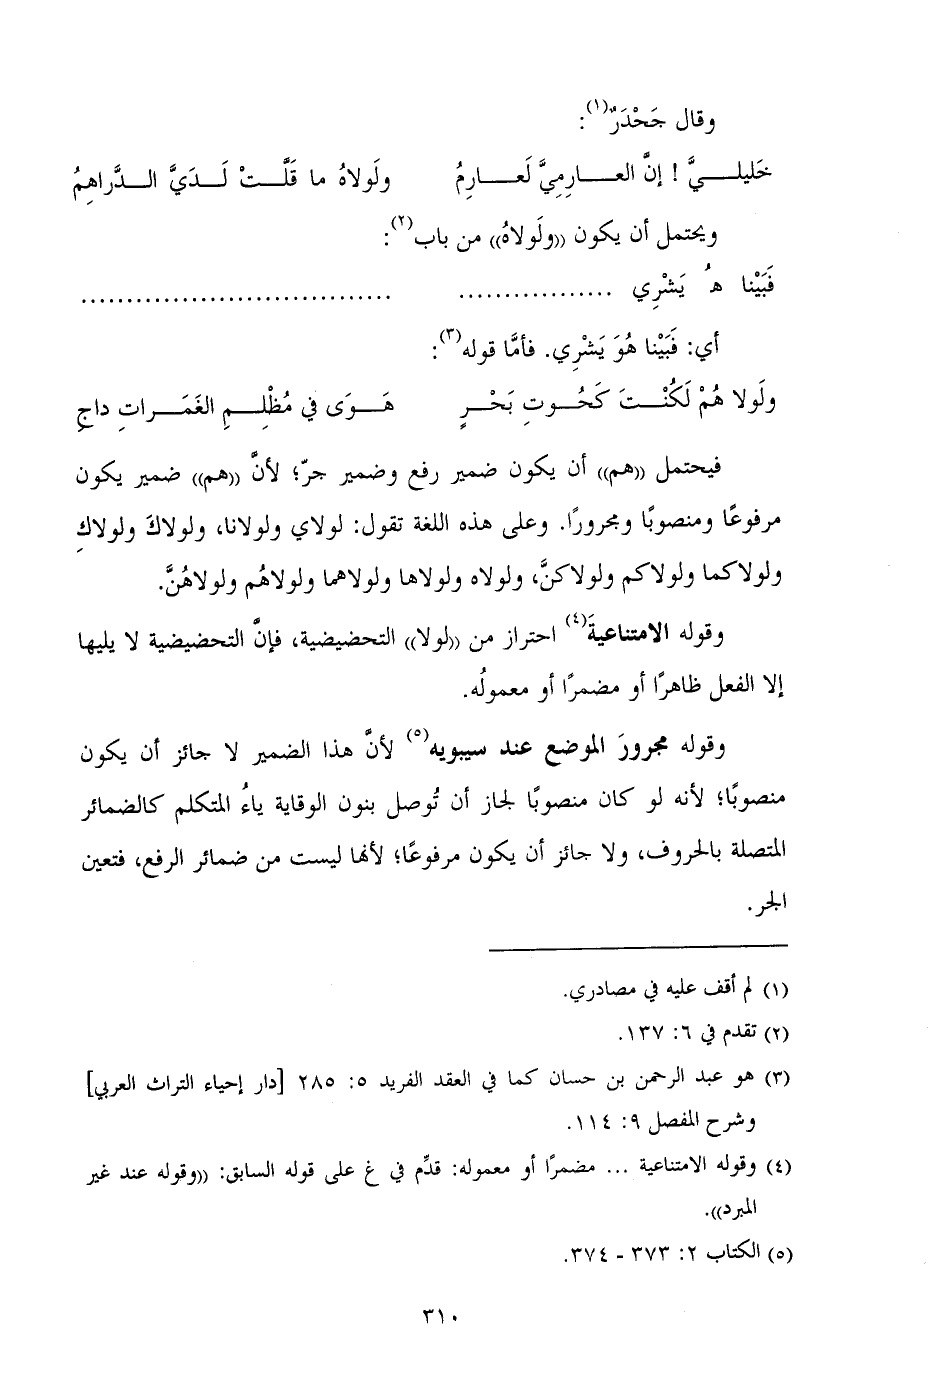 وقال جَحْدَرٌ(١):
خَليلـــيَّ ! إنَّ العـــارِمِيَّ لَعـــارِمُ    ولَولاهُ ما قَلَّـــتْ لَـــدَيَّ الـــدَّراهِمُ
ويحتمل أن يكون ((ولَولاهُ)) من باب(٢):
فَبَيْنا هُ يَشْرِي .................    ..................................
أي: فَبَيْنا هُوَ يَشْرِي. فأمَّا قوله(٣):
ولَولا هُمْ لَكُنْـــتَ كَحُـــوتِ بَحْـــرٍ    هَـــوَى في مُظْلِـــمِ الغَمَـــراتِ داجِ
فيحتمل ((هم)) أن يكون ضمير رفع وضمير جرّ؛ لأنَّ ((هم)) ضمير يكون
مرفوعًا ومنصوبًا ومجرورًا. وعلى هذه اللغة تقول: لولاي ولولانا، ولولاكَ ولولاكِ
ولولاكما ولولاكم ولولاكنَّ، ولولاه ولولاها ولولاهما ولولاهُم ولولاهُنَّ.
وقوله الامتناعيةَ(٤) احتراز من ((لولا)) التحضيضية، فإنَّ التحضيضية لا يليها
إلا الفعل ظاهرًا أو مضمرًا أو معمولُه.
وقوله مجرورَ الموضع عند سيبويه(٥) لأنَّ هذا الضمير لا جائز أن يكون
منصوبًا؛ لأنه لو كان منصوبًا لجاز أن تُوصل بنون الوقاية ياءُ المتكلم كالضمائر
المتصلة بالحروف، ولا جائز أن يكون مرفوعًا؛ لأنها ليست من ضمائر الرفع، فتعين
الجر.
(١) لم أقف عليه في مصادري.
(٢) تقدم في ٦: ١٣٧.
(٣) هو عبد الرحمن بن حسان كما في العقد الفريد ٥: ٢٨٥ [دار إحياء التراث العربي]
وشرح المفصل ٩: ١١٤.
(٤) وقوله الامتناعية ... مضمرًا أو معموله: قدِّم في غ على قوله السابق: ((وقوله عند غير
المبرد)).
(٥) الكتاب ٢: ٣٧٣ - ٣٧٤.
٣١٠